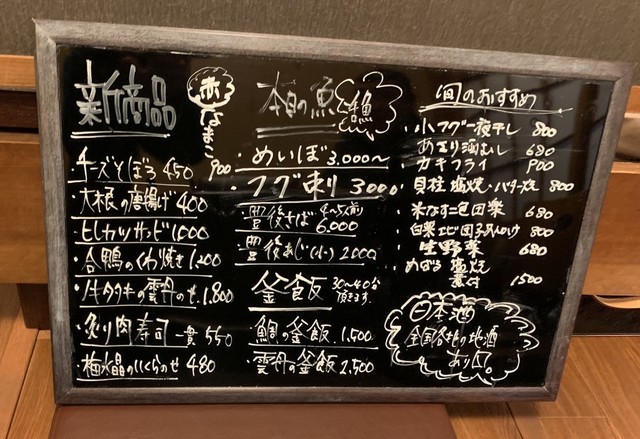 新商品
赤なまこ 900
チーズそぼろ 450
大根の唐揚げ 400
ヒレカツサンド 1,000
合鴨のくわ焼き 1,200
牛タタキの雲丹のせ 1,800
炙り肉寿司 一貫 550
梅水晶のいくらのせ 480
本日の魚
めいぼ 3,000〜
フグ刺 3000
豊後さば 4〜5人前 6,000
豊後あじ(小) 2000
釜飯 30〜40分頂きます
鯛の釜飯 1,500
雲丹の釜飯 2,500
旬のおすすめ
・小フグ一夜干し 800
あさり酒むし 680
・カキフライ 900
貝柱 塩焼・バター焼 800
・米なす二色田楽 680
白菜エビ団子あんかけ 800
・生野菜 680
めばる 塩焼
煮付 1500
日本酒
全国各地の地酒
あり